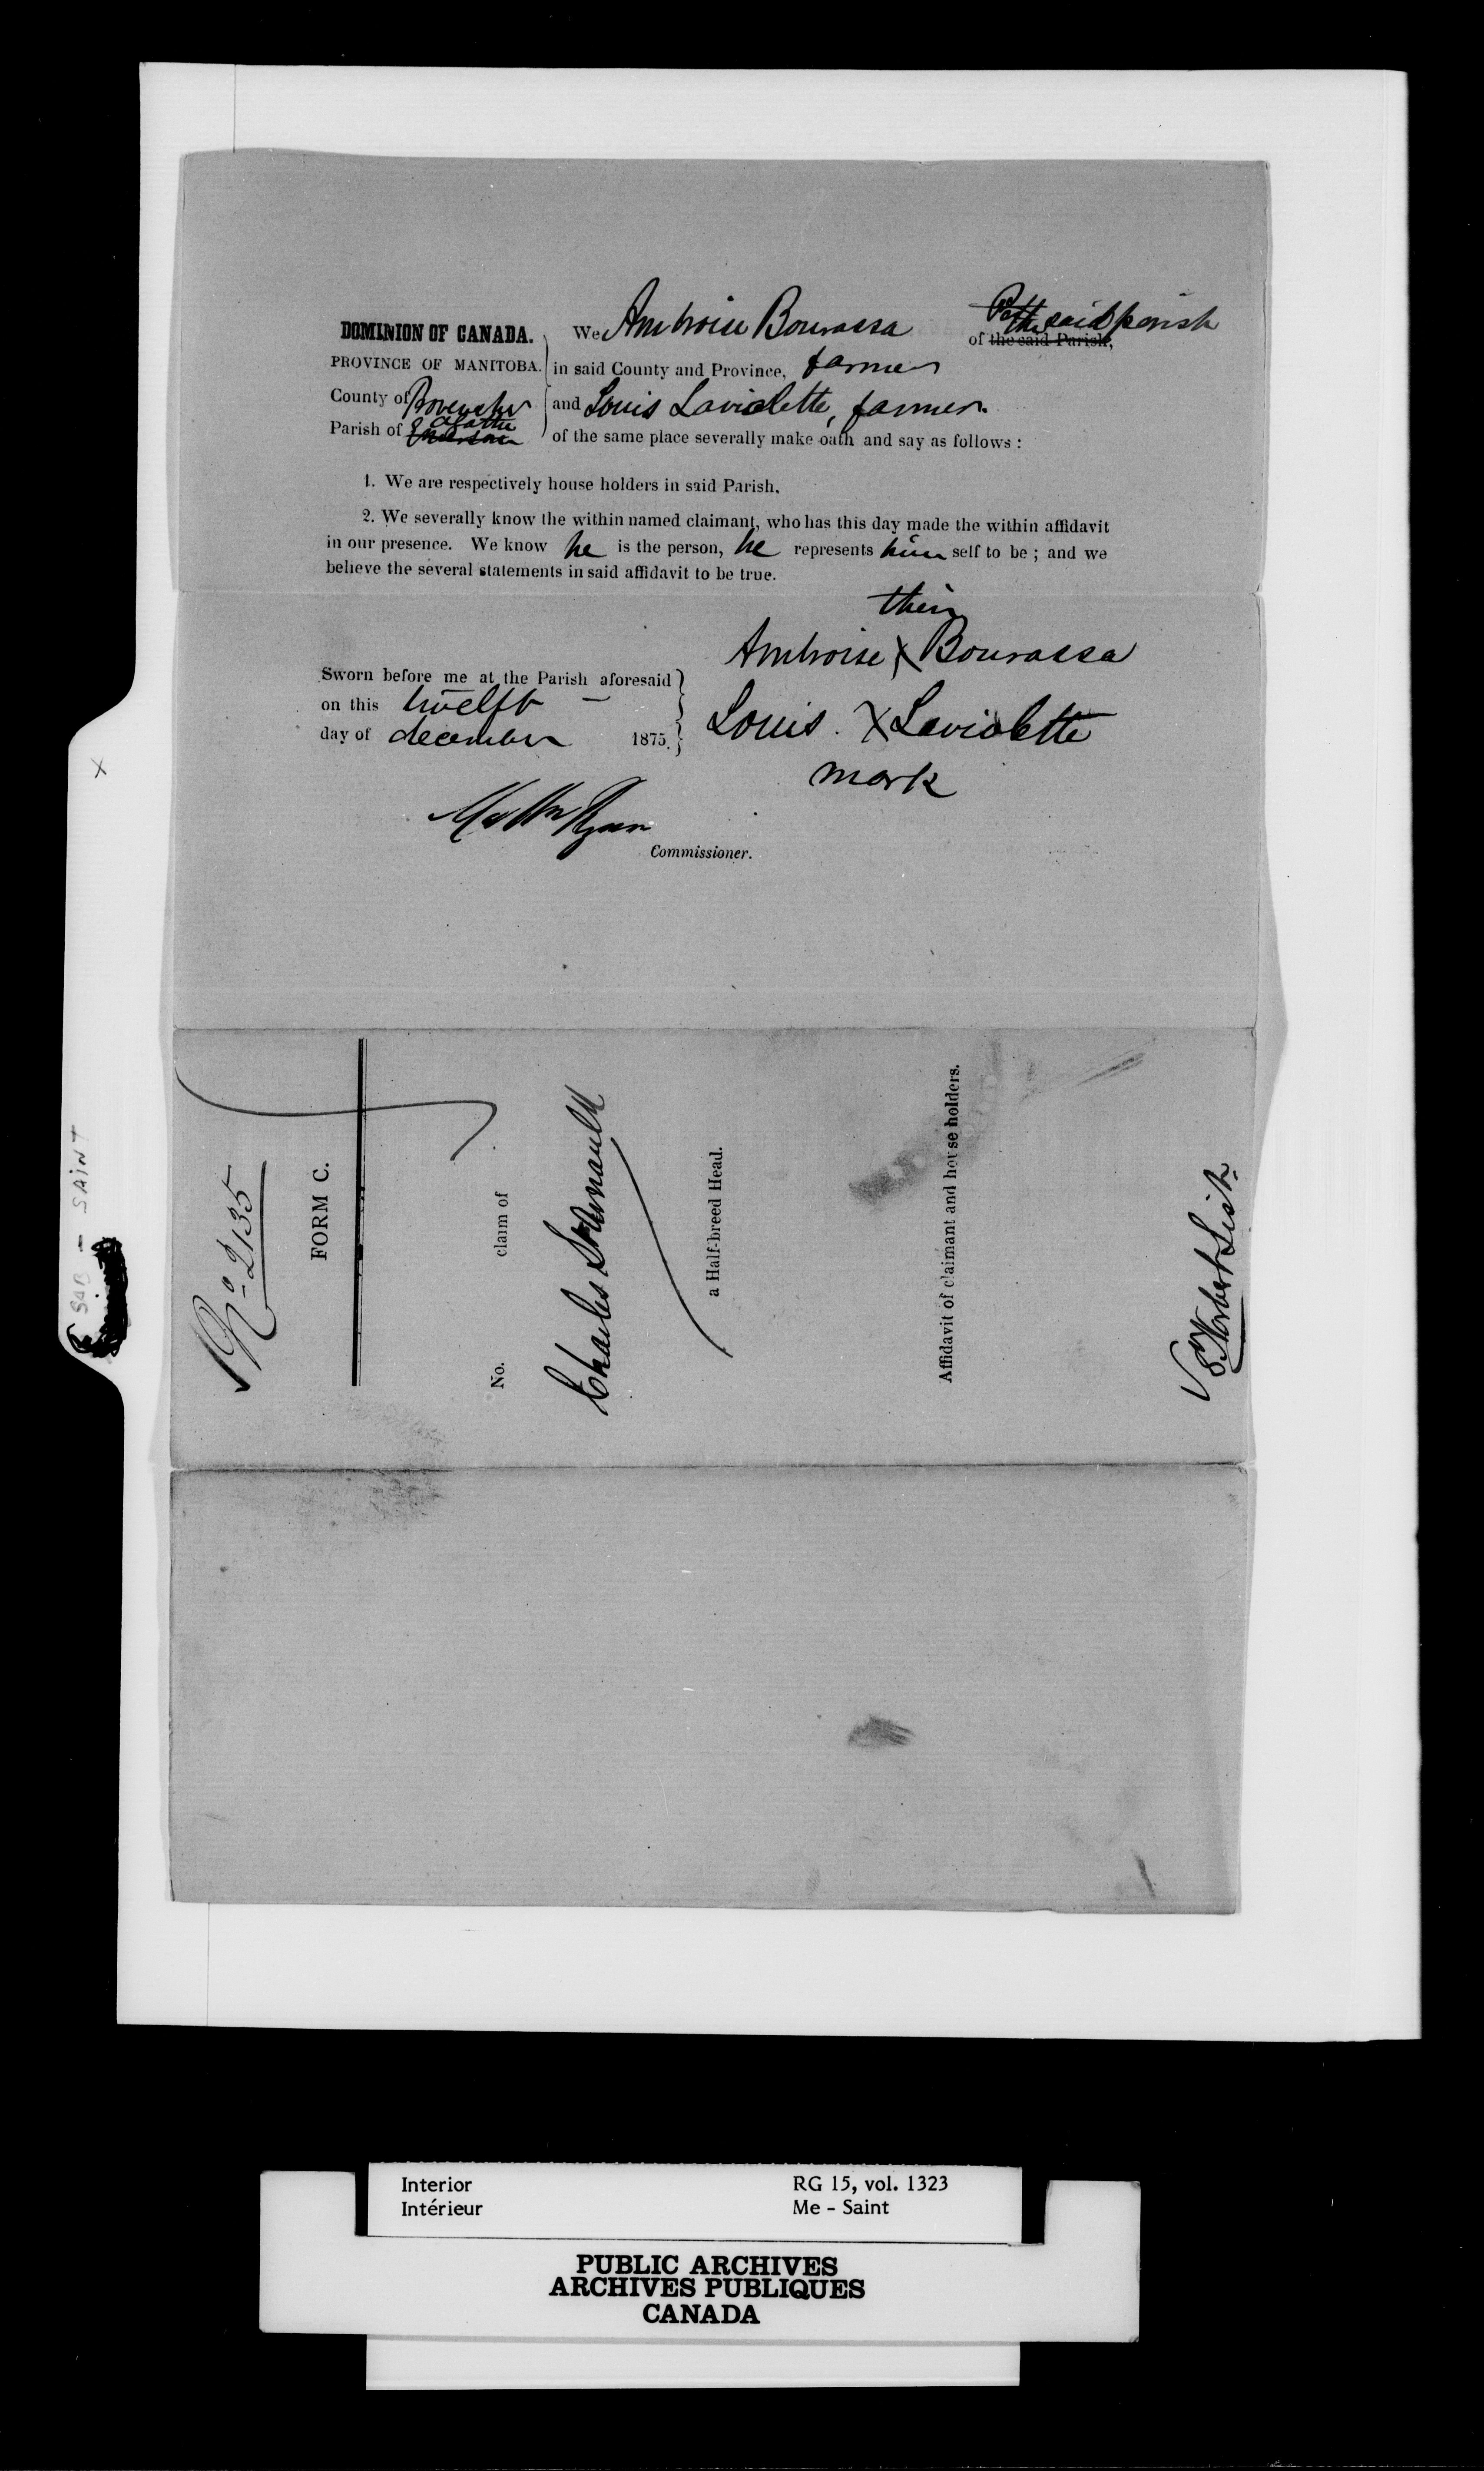 DOMINION OF CANADA.
PROVINCE OF MANITOBA.
County of Provencher
Parish of Agathe
We Ambroise Bourassa
of the said Parish, the said parish
in said County and Province, farmer
and Louis Laviolette, farmer.
of the same place severally make oath and say as follows :
1. We are respectively house holders in said Parish.
2. We severally know the within named claimant, who has this day made the within affidavit
in our presence. We know he is the person, he represents him self to be ; and we
believe the several statements in said affidavit to be true.
their
Ambroise X Bourassa
Louis . X Laviolette
mark
Sworn before me at the Parish aforesaid
on this twelft —
day of december 1875.
Commissioner.
X
SAB - SAINT
No 2135
FORM C.
No. claim of
Charles
a Half-breed Head.
Affidavit of claimant and house holders.
St Norbert List
Interior
Intérieur
RG 15, vol. 1323
Me - Saint
PUBLIC ARCHIVES
ARCHIVES PUBLIQUES
CANADA